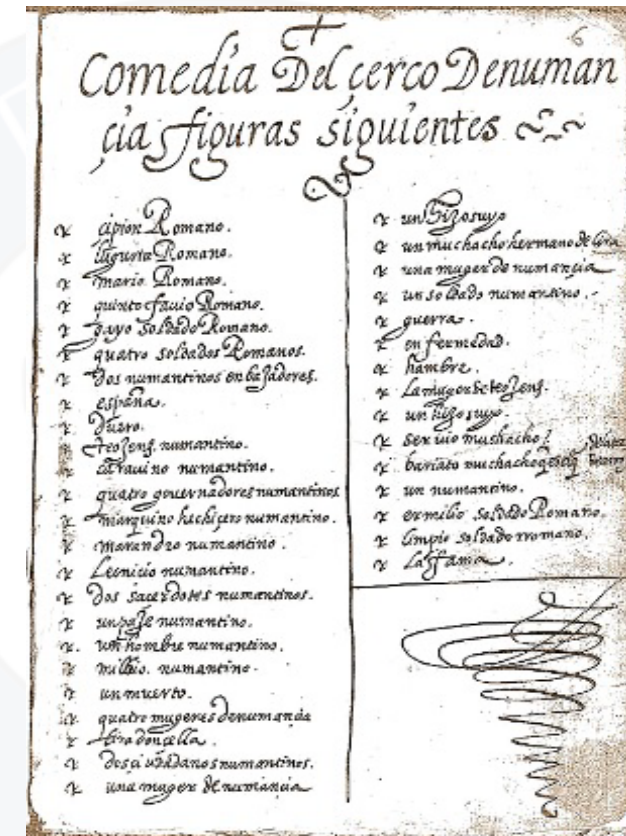 6
Comedia Del çerco Denuman
çia figuras siguientes
çipion Romano.
Iugurta Romano.
mario Romano.
quinto fauio Romano.
gayo soldado Romano.
quatro soldados Romanos.
Dos numantinos enbaJadores.
españa.
Duero.
teoJenes numantino.
carauino numantino.
quatro gouernadores numantinos
marquino hechiçero numantino.
marandro numantino.
Leonicio numantino.
Dos saçerdotes numantinos.
un paJe numantino.
un hombre numantino.
milbio. numantino.
un muerto.
quatro mugeres denumançia
lira donçella.
Dos çiudadanos numantinos.
una muger de numançia
un hiJo suyo
un muchacho hermano de lira
una muger de numançia
un soldado numantino.
guerra.
enfermedad.
hambre.
La muger de teoJenes.
un hiJo suyo.
seruio muchacho
bariato muchacho
un numantino.
ermilio soldado Romano.
limpio soldado rromano.
La ffama.